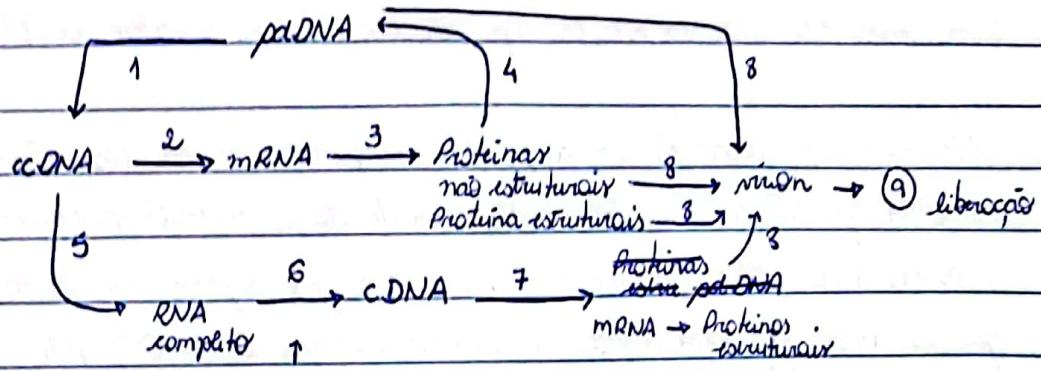 pdDNA
1
4
8
ccDNA 2 mRNA 3 Proteinas
não estruturais 8 viron → 9 liberacção
Proteina estruturais 8
3
5
6 cDNA 7 Proteinas
RNA
completo
mRNA → Proteinas
estruturais